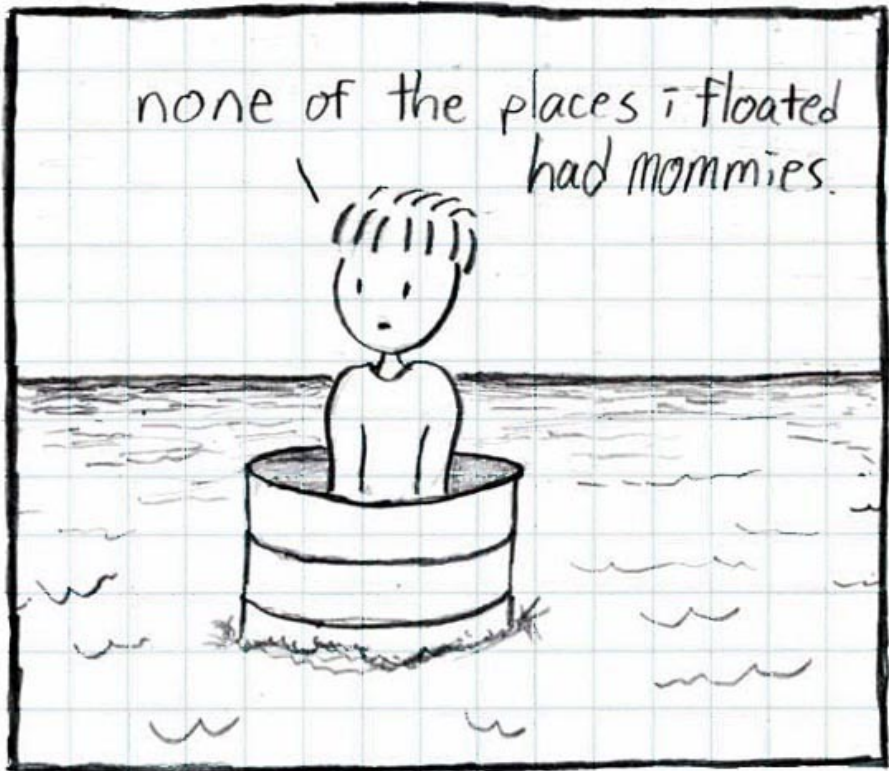 none of the places i floated
had mommies.